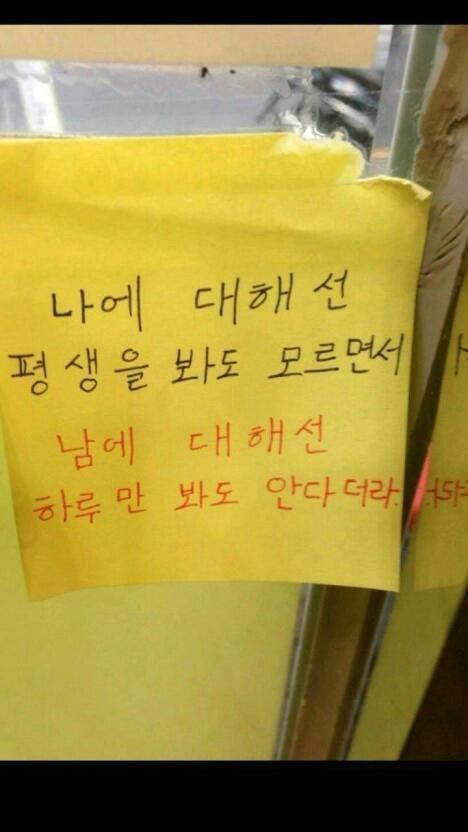 나에 대해선
평생을 봐도 모르면서
남에 대해선
하루만 봐도 안다더라.